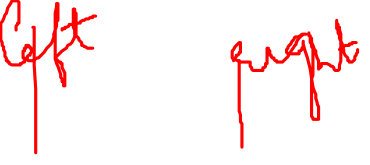 left right